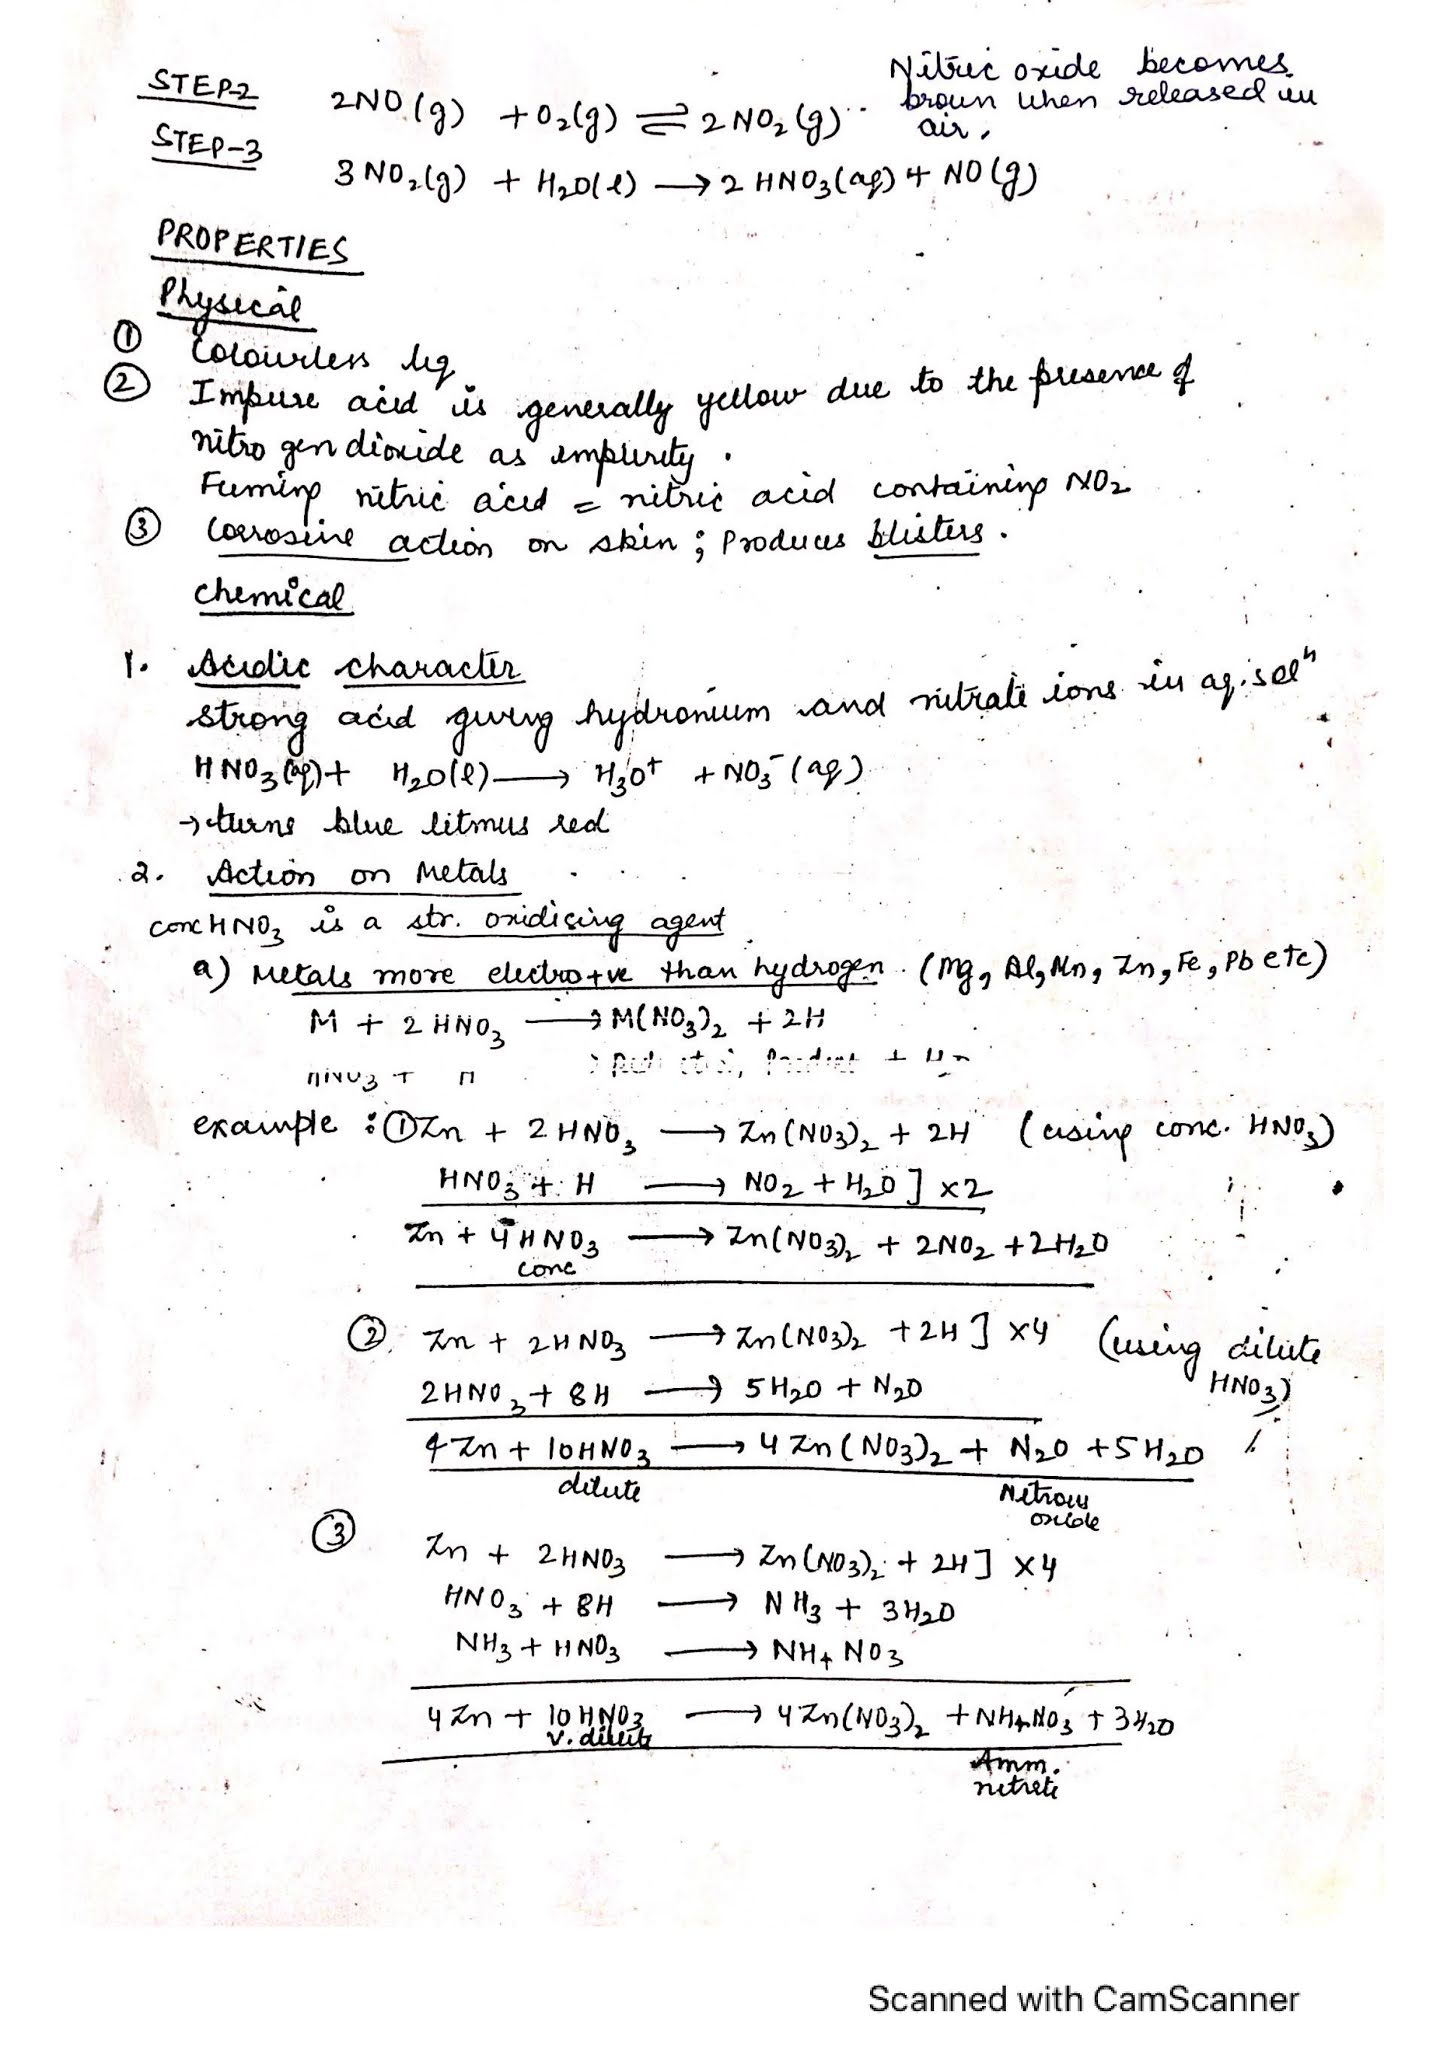 Nitric oxide becomes
STEP-2 2NO(g) + O₂(g) ⇌ 2NO₂(g) brown when released in
air.
STEP-3
3NO₂(g) + H₂O(l) → 2HNO₃(aq) + NO(g)
PROPERTIES
Physical
① Colourless liq
② Impure acid is generally yellow due to the presence of
nitrogen dioxide as impurity.
Fuming nitric acid = nitric acid containing NO₂
③ Corrosive action on skin; Produces blisters.
Chemical
1. Acidic character
Strong acid giving hydronium and nitrate ions in aq. solⁿ
HNO₃(aq) + H₂O(l) → H₃O⁺ + NO₃⁻(aq)
→ turns blue litmus red
2. Action on Metals
conc HNO₃ is a str. oxidising agent
a) Metals more electro+ve than hydrogen. (Mg, Al, Mn, Zn, Fe, Pb etc)
M + 2HNO₃ → M(NO₃)₂ + 2H
HNO₃ + H
example: ① Zn + 2HNO₃ → Zn(NO₃)₂ + 2H (using conc. HNO₃)
HNO₃ + H → NO₂ + H₂O ] ×2
Zn + 4HNO₃ → Zn(NO₃)₂ + 2NO₂ + 2H₂O
conc
② Zn + 2HNO₃ → Zn(NO₃)₂ + 2H ] ×4 (using dilute
HNO₃)
2HNO₃ + 8H → 5H₂O + N₂O
4Zn + 10HNO₃ → 4Zn(NO₃)₂ + N₂O + 5H₂O
dilute Nitrous
oxide
③ Zn + 2HNO₃ → Zn(NO₃)₂ + 2H ] ×4
HNO₃ + 8H → NH₃ + 3H₂O
NH₃ + HNO₃ → NH₄NO₃
4Zn + 10HNO₃ → 4Zn(NO₃)₂ + NH₄NO₃ + 3H₂O
v. dilute
Amm.
nitrate
Scanned with CamScanner